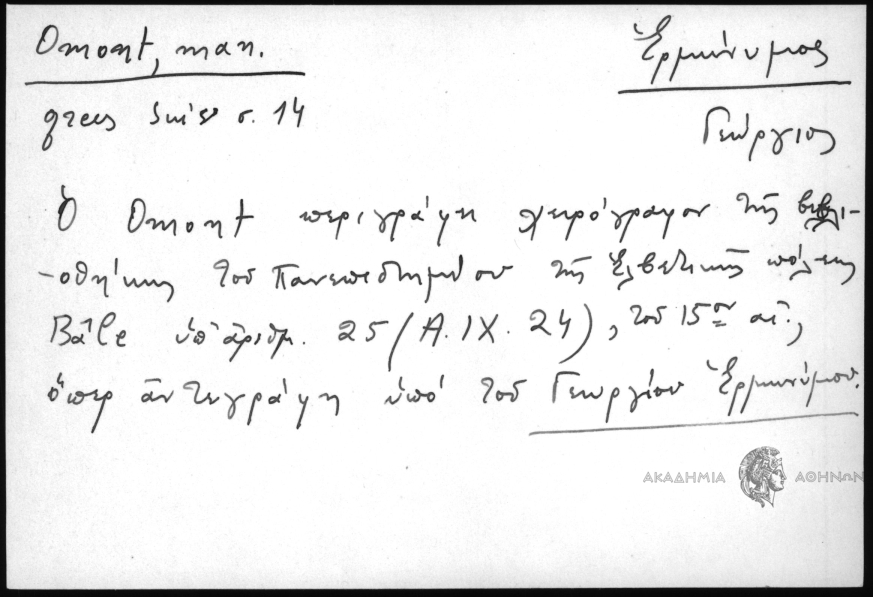 Omont, man.
grecs Suiss σ. 14
Ἑρμώνυμος
Γεώργιος
Ὁ Omont περιγράφει χειρόγραφον τῆς βιβλι-
-οθήκης τοῦ Πανεπιστημίου τῆς Ἑλβετικῆς πόλεως
Bâle ὑπ' ἀριθμ. 25 (A. IX. 24), τοῦ 15ου αἰ.,
ὅπερ ἀντεγράφη ὑπό τοῦ Γεωργίου Ἑρμωνύμου.
ΑΚΑΔΗΜΙΑ ΑΘΗΝΩΝ